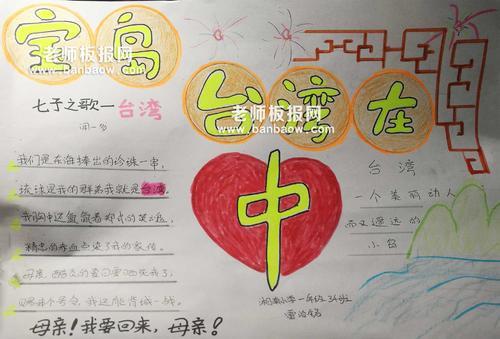 宝岛
台湾在
中
老师板报网
www.banbaow.com
老师板报网
www.banbaow.com
七子之歌一台湾
闻一多
我们是东海捧出的珍珠一串,
琉球是我的群弟我就是台湾。
我胸中还氤氲着郑氏的英魂,
精忠的赤血点染了我的家传。
母亲
我
母亲!我要回来,母亲!
台湾
一个美丽动人
而又遥远的
小岛
湘南小学一年级34班